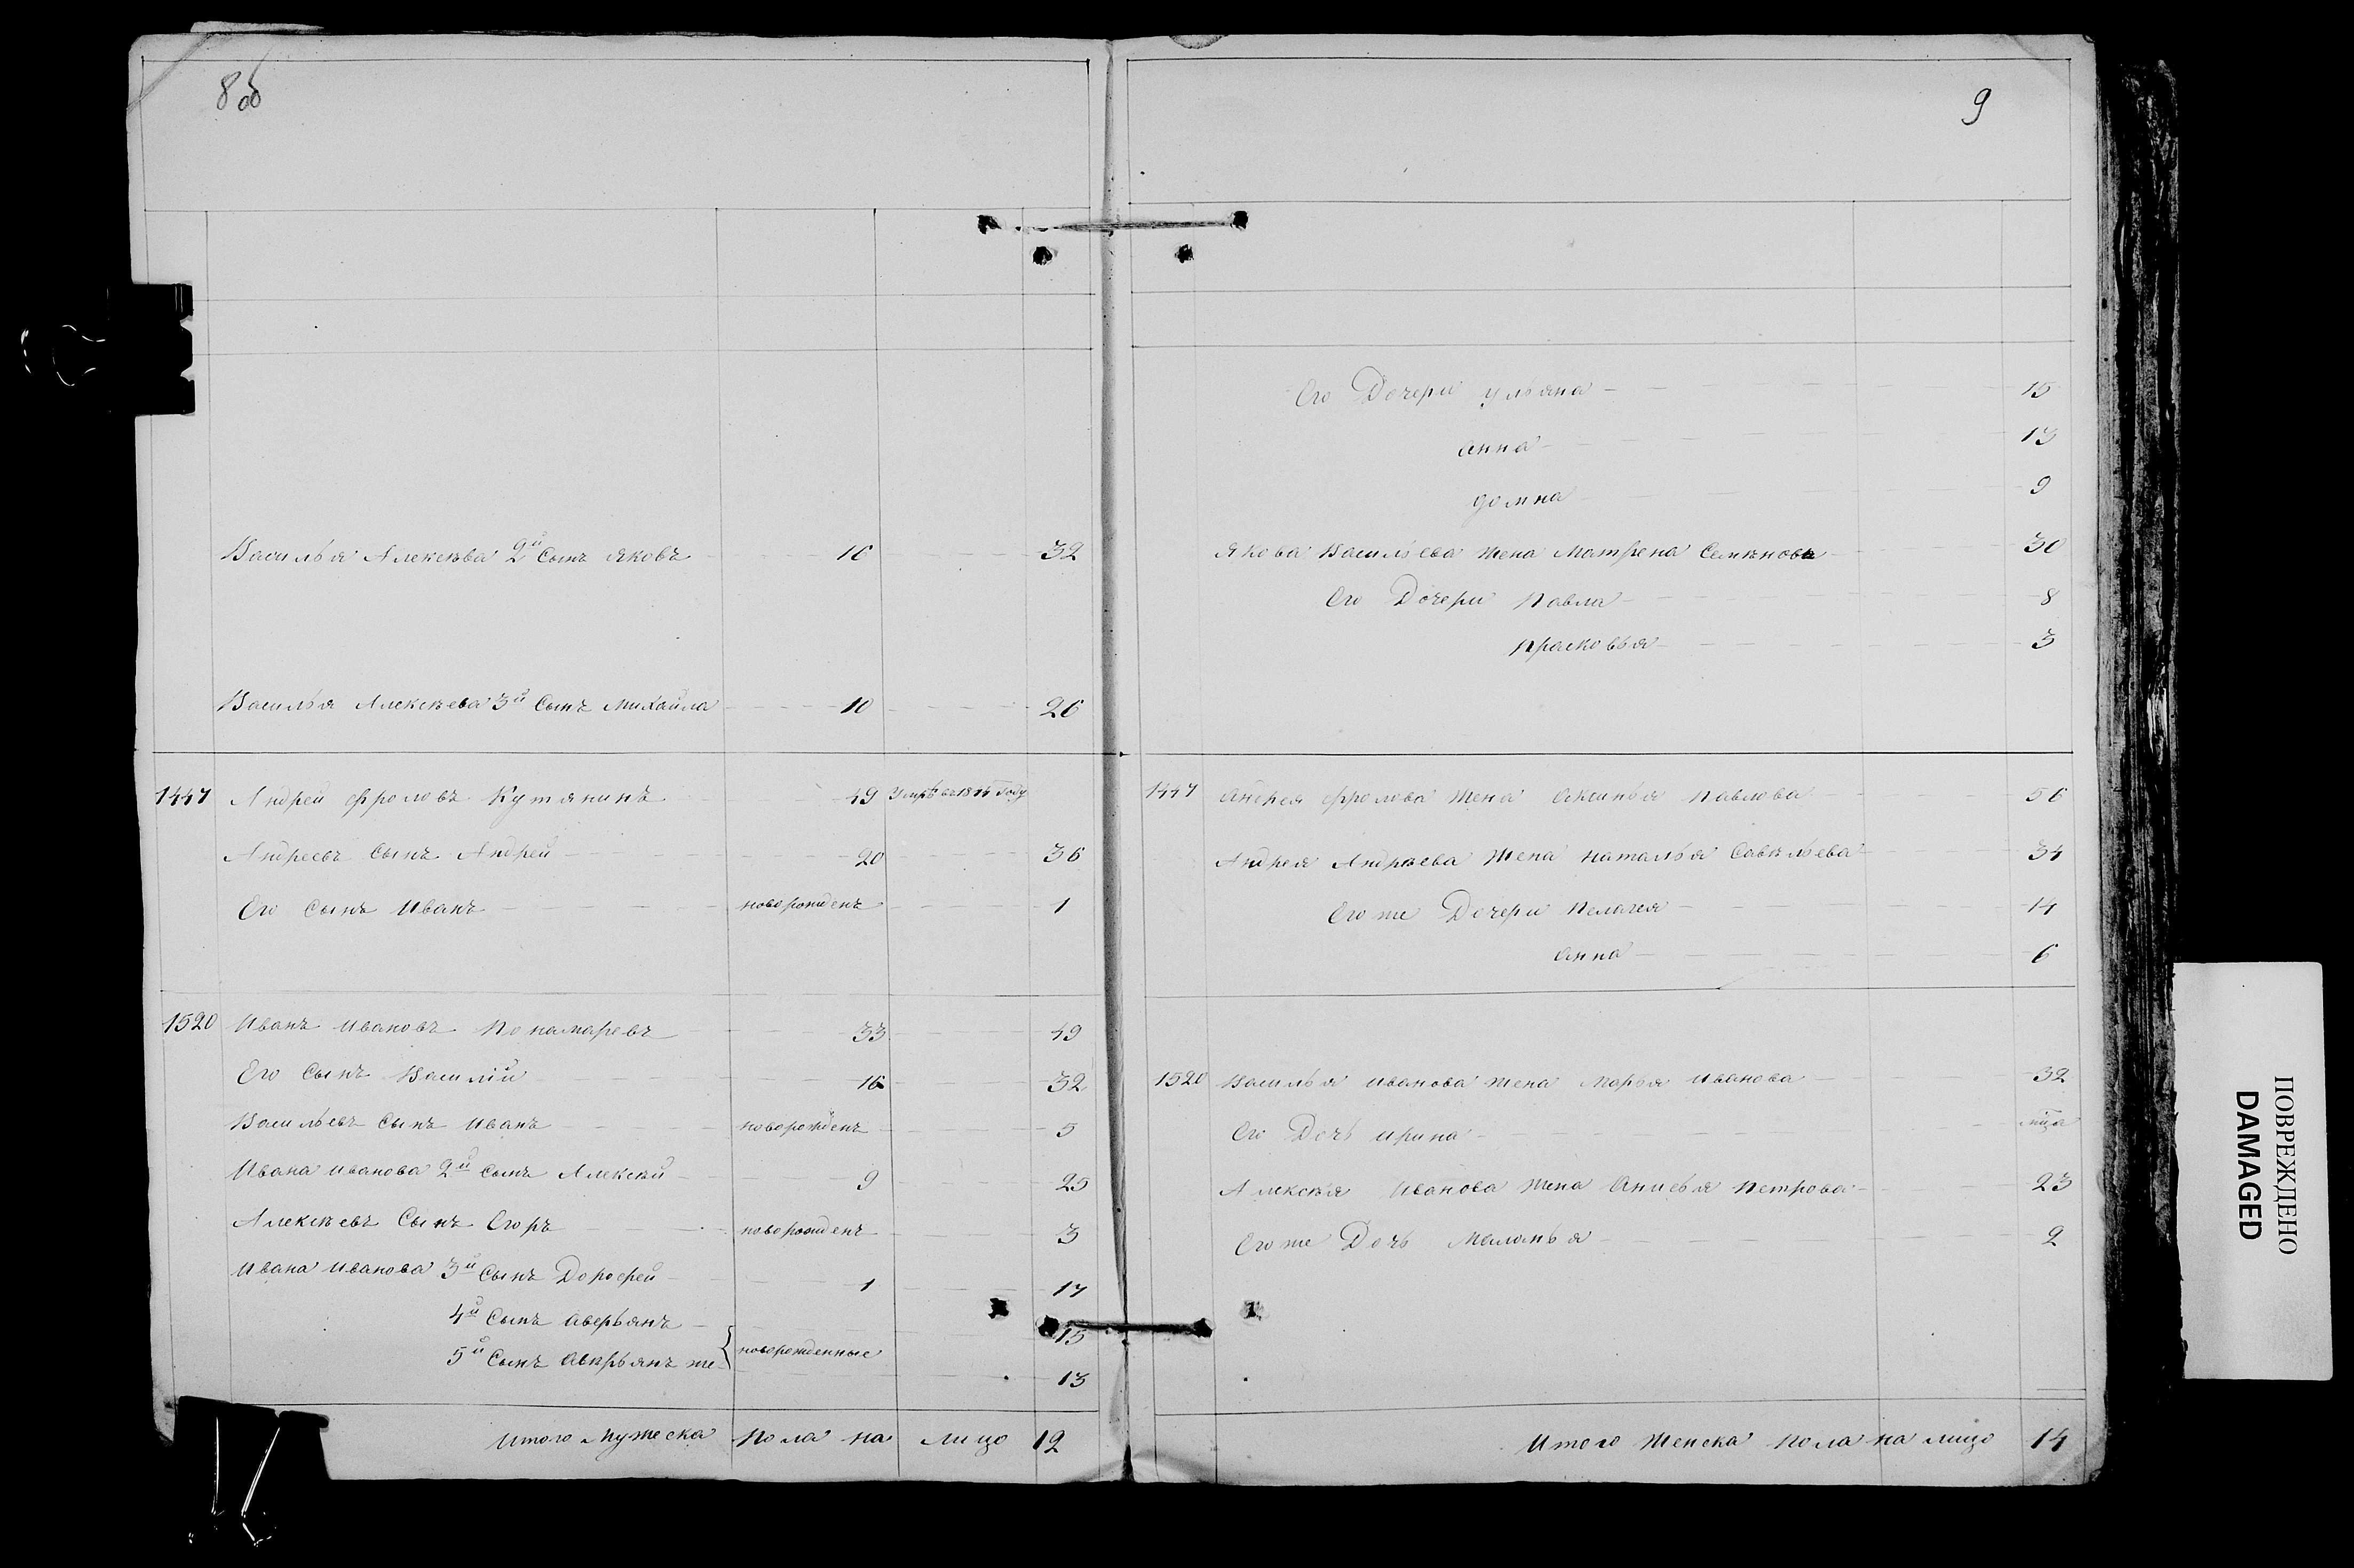 8 об
Василья Алексѣва 2й Сынъ Яковъ 16 32
Василья Алексѣева 3й Сынъ Михайла 10 26
1447 Андрей Фроловъ Кутянинъ 49 умръ въ 18 году
Андреевъ Сынъ Андрей 20 36
Его Сынъ Иванъ новорожденъ 1
1520 Иванъ Ивановъ Понамаревъ 33 49
Его Сынъ Василій 16 32
Васильевъ Сынъ Иванъ новорожденъ 5
Ивана Иванова 2й Сынъ Алексѣй 9 25
Алексѣевъ Сынъ Егоръ новорожденъ 3
Ивана Иванова 3й Сынъ Дорофей 1 17
4й Сынъ Аверьянъ 15
5й Сынъ Аверьянъ же новорожденные 13
Итого Мужеска Пола на лицо 12
9
Его Дочери Ульяна 15
Анна 13
Домна 9
Якова Васильева Жена Матрена Семѣнова 30
Его Дочери Павла 8
Прасковья 3
1447 Андрея Фролова Жена Аксинья Павлова 56
Андрея Андрѣева Жена Наталья Савѣльева 34
Его же Дочери Пелагея 14
Анна 6
1520 Василья Иванова Жена Марья Иванова 32
Его Дочь Ирина
Алексѣя Иванова Жена Анисья Петрова 23
Его же Дочь Меланья 2
Итого Женска пола на лицо 14
ПОВРЕЖДЕНО
DAMAGED